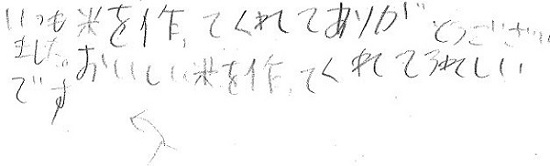 いつも米を作ってくれてありがとうござい
ました。おいしい米を作ってくれてうれしい
です